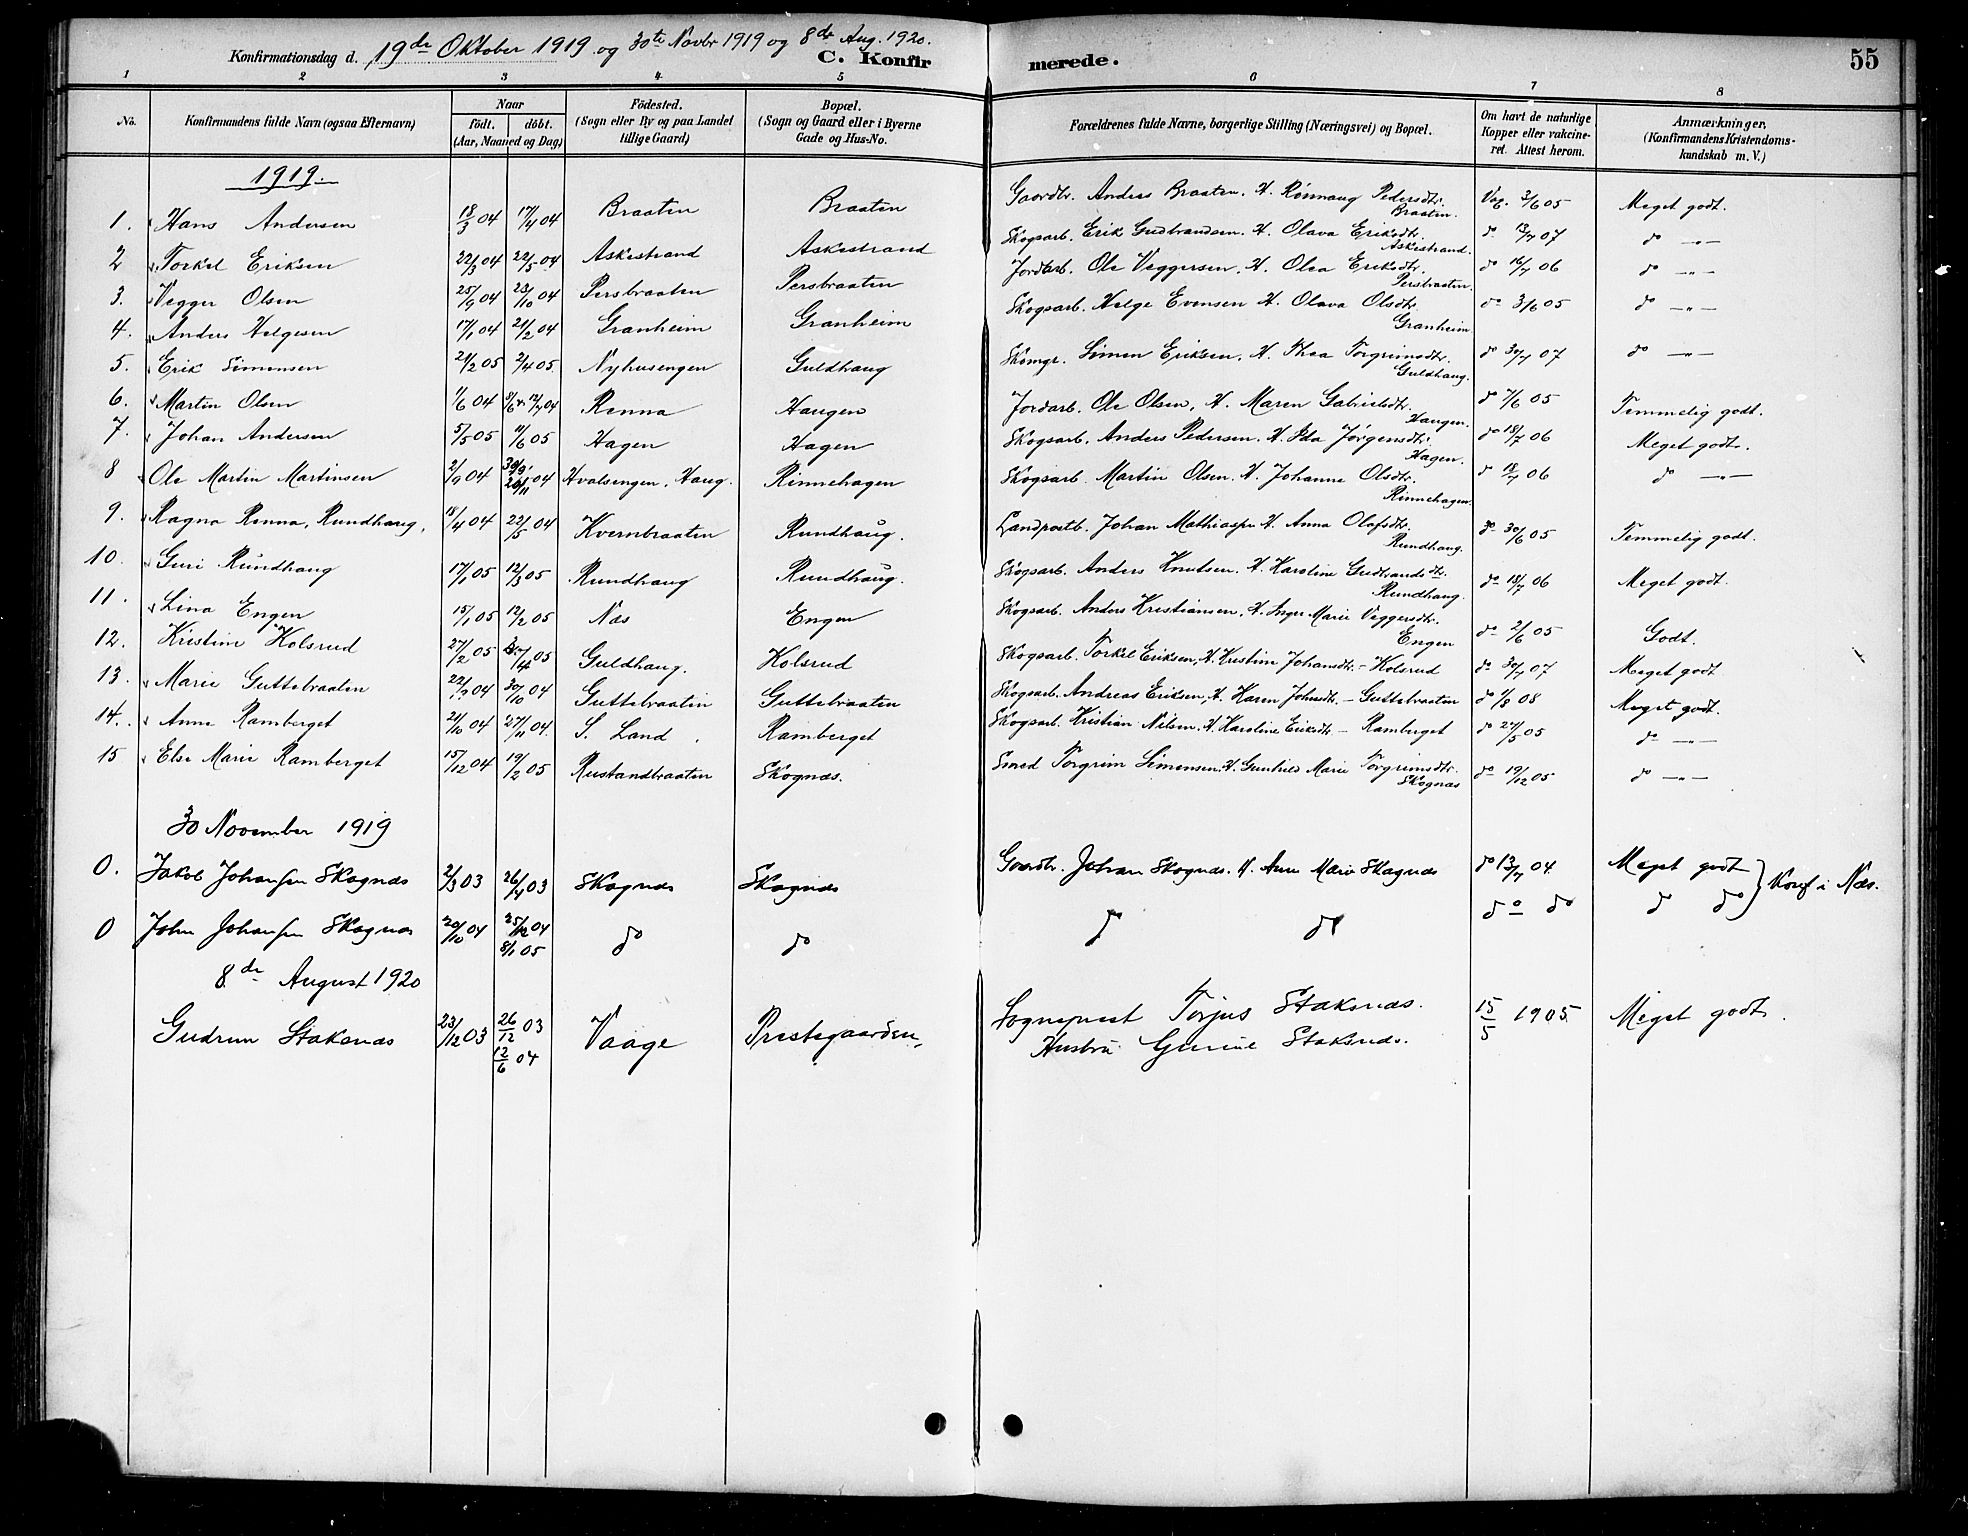 Konfirmationsdag d. 19de Oktober 1919 og 30te Novbr 1919 og 8de Aug. 1920.
C. Konfirmerede. 55
1 2 3 4 5 6 7 8
No. Konfirmandens fulde Navn (ogsaa Efternavn) Naar födt. döbt. (Aar, Maaned og Dag) Födested. (Sogn eller By og paa Landet tillige Gaard) Bopæl. (Sogn og Gaard eller i Byerne Gade og Hus-No. Forældrenes fulde Navne, borgerlige Stilling (Næringsvei) og Bopæl. Om havt de naturlige Kopper eller vakcineret. Attest herom. Anmærkninger, (Konfirmandens Kristendomskundskab m. V.)
1919.
1. Hans Andersen 18/3 04 17/4 04 Braaten Braaten Gaardbr. Anders Braaten. H. Rønnaug Pedersdtr. Braaten. Vac. 3/6 05 Meget godt.
2 Torkel Eriksen 22/3 04 22/5 04 Askestrand Askestrand Skogsarb. Erik Gudbrandsen. H. Olava Eriksdtr. Askestrand. do 13/7 07 do -"-
3. Vegger Olsen 25/9 04 23/10 04 Persbraaten Persbraaten Jordarb. Ole Veggersen, H. Olea Eriksdtr. Persbraaten. do 16/7 06 do -"-
4. Anders Helgesen 17/1 04 21/2 04 Granheim Granheim Skogsarb. Helge Evensen H. Olava Olsdtr. Granheim do 3/6 05 do -"-
5. Erik Simensen 21/2 05 2/4 05 Nyhusengen Guldhaug Skomgr. Simen Eriksen. H. Thea Torgrimsdtr. Guldhaug. do 30/7 07 do -"-
6. Martin Olsen 1/6 04 Renna Haugen Jordarb. Ole Olsen, H. Maren Gabrielsdtr. Haugen. do 7/6 05 Temmelig godt.
7. Johan Andersen 5/5 05 11/6 05 Hagen Hagen Skogsarb. Anders Pedersen. H. Ida Jørgensdtr. Hagen. do 18/7 06 Meget godt.
8 Ole Martin Martinsen 2/9 04 Hvalsengen, Haug. Rinnehagen Skogsarb. Martin Olsen. H. Johanne Olsdtr. Rinnehagen. do 18/7 06 do -"-
9. Ragna Renna, Rundhaug, 18/4 04 22/5 04 Kvernbraaten Rundhaug. Landpostb. Johan Mathiasen H. Anna Olafsdtr. Rundhaug. do 30/6 05 Temmelig godt.
10. Guri Rundhaug 17/1 05 12/3 05 Rundhaug Rundhaug. Skogsarb. Anders Knutsen. H. Karoline Gudbrandsdtr. Rundhaug. do 18/7 06 Meget godt.
11. Lina Engen 15/1 05 12/2 05 Næs Engen Skogsarb. Anders Kristiansen, H. Inger Marie Veggersdtr. Engen do 2/6 05 Godt.
12. Kristine Kolsrud 27/2 05 Guldhaug. Kolsrud Skogsarb. Torkel Eriksen, H. Kristine Johansdtr. - Kolsrud do 30/7 07 Meget godt
13. Marie Guttebraaten 22/9 04 30/10 04 Guttebraaten Guttebraaten Skogsarb. Andreas Eriksen, H. Karen Johnsdtr. - Guttebraaten do 1/8 08 Meget godt.
14. Anne Ramberget 21/10 04 27/11 04. S. Land. Ramberget Skogsarb. Kristian Nilsen. H. Karoline Eriksdtr. - Ramberget do 27/5 05 do -"-
15 Else Marie Ramberget 15/12 04 19/2 05 Rustandbraaten Skognæs. Smed Torgrim Simensen. H. Gunhild Marie Torgrimsdtr. Skognæs do 19/12 05 do -"-
30 November 1919
0. Jakob Johansen Skognæs 2/3 03 26/4 03 Skognæs Skognæs Gaardbr. Johan Skognæs. H. Anne Marie Skognæs do 13/7 04. Meget godt
0 John Johansen Skognæs 20/10 04 25/12 04 8/1 05 do do do do do do do do } Konf i Næs.
8de August 1920
Gudrun Staksnæs 23/12 03 26/12 03 12/6 04 Vaage Prestegaarden, Sogneprest Torjus Staksnæs. Hustru Staksnæs. 15/5 1905. Meget godt.